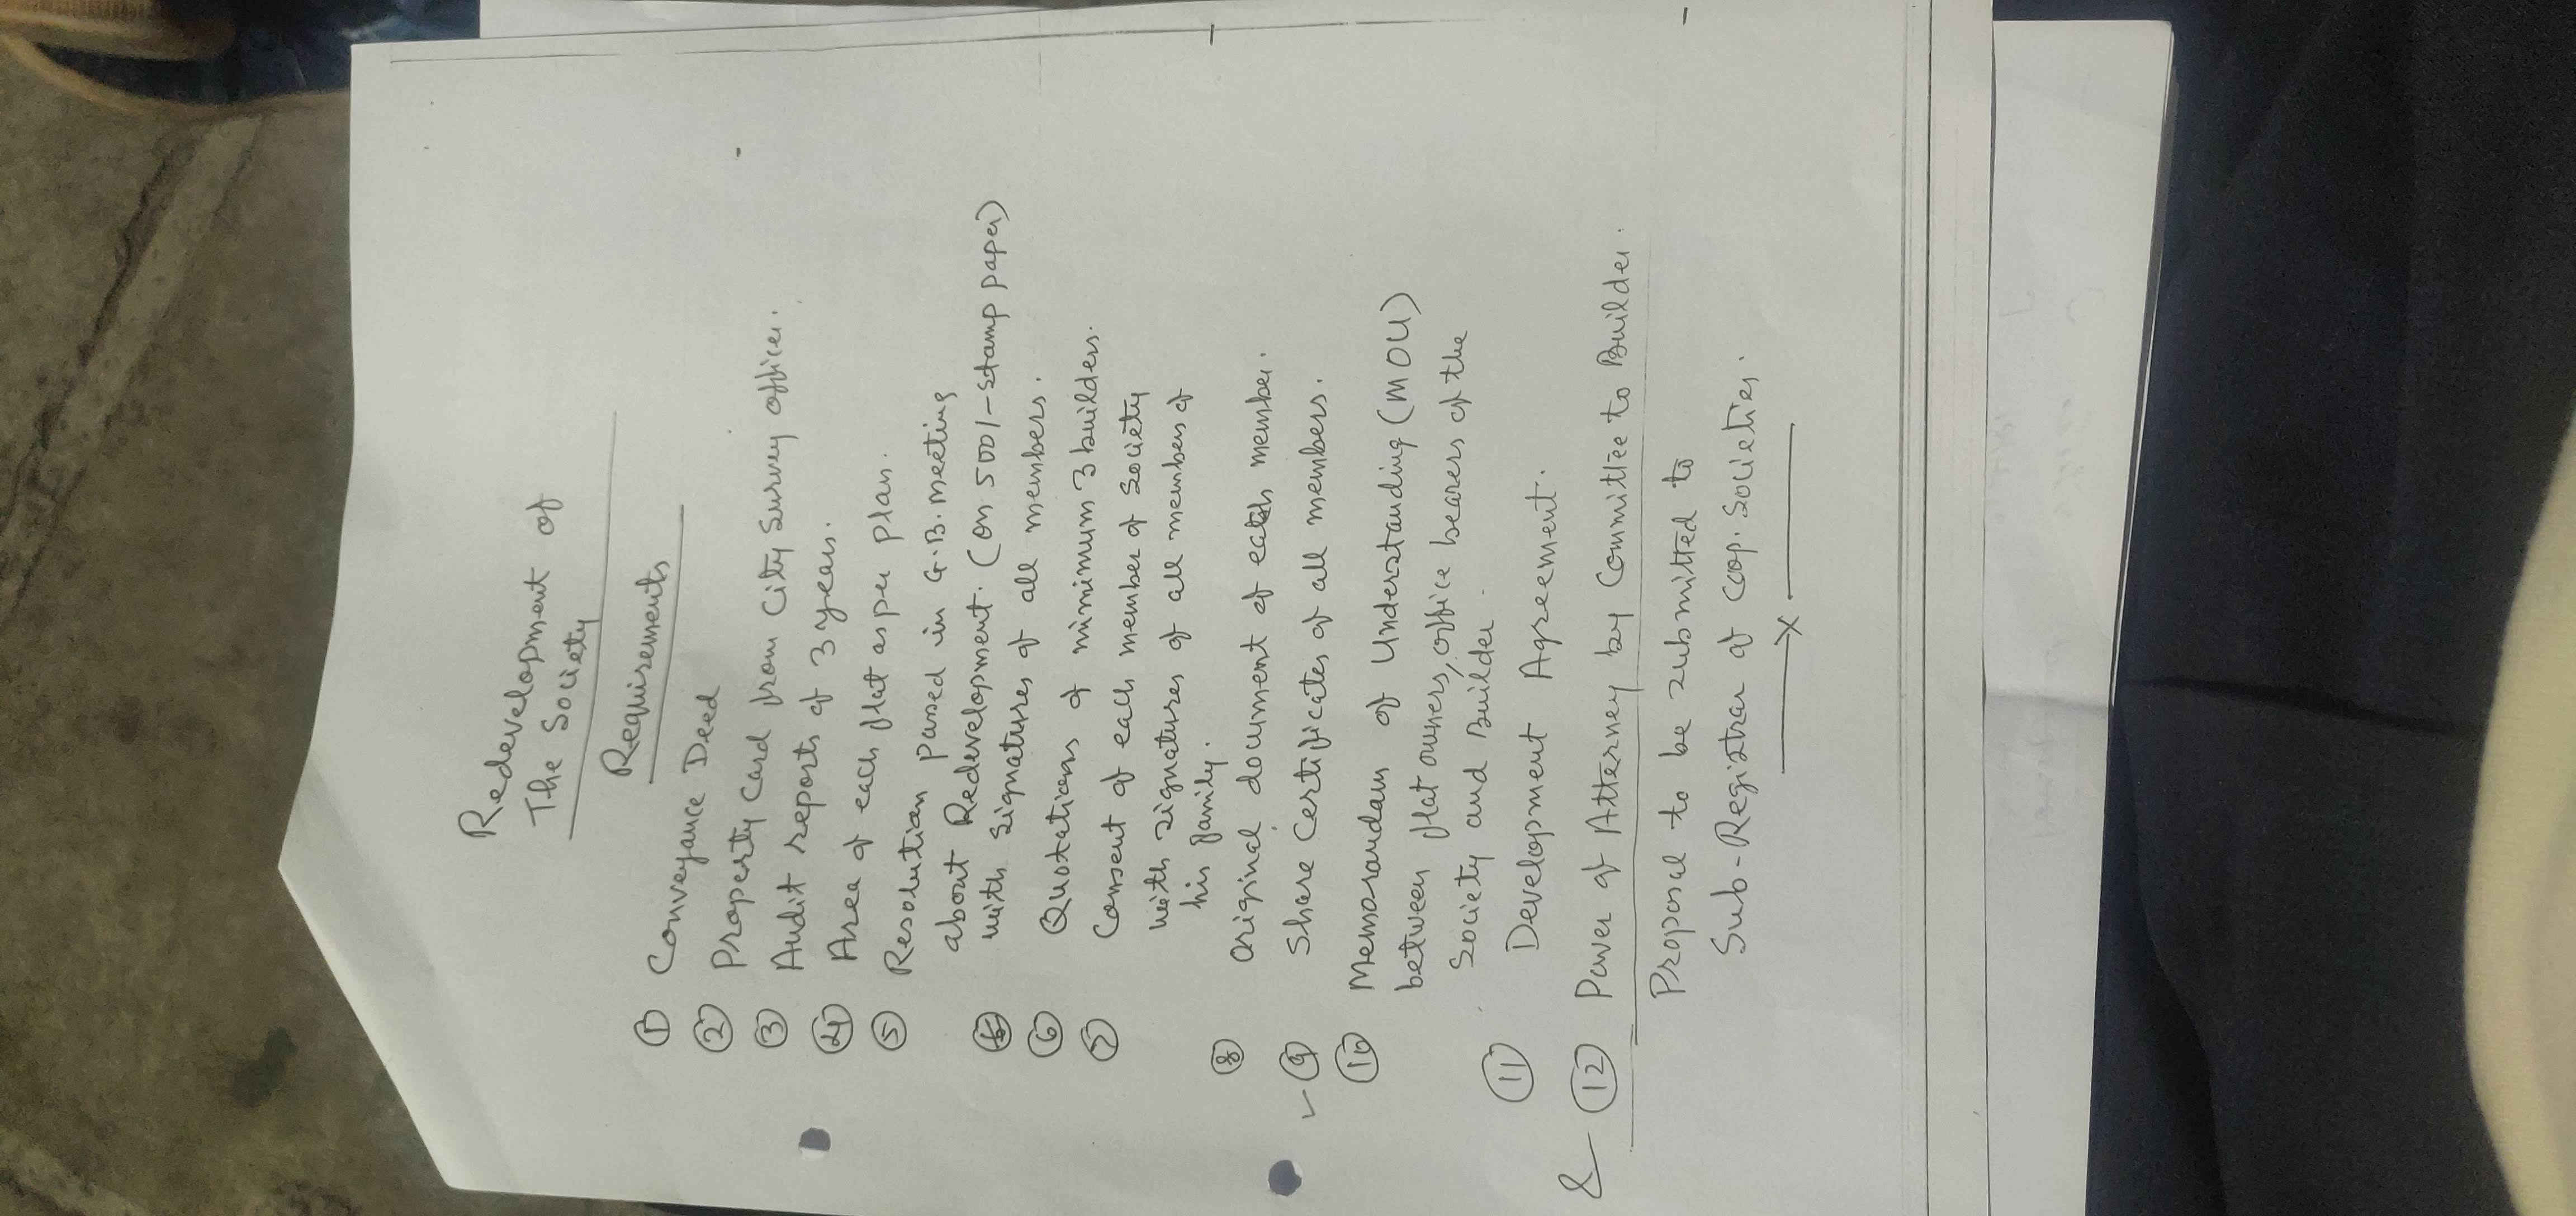 Redevelopment of
The Society
Requirements
① Conveyance Deed
② Property Card from City Survey office.
③ Audit reports of 3 years.
④ Area of each flat as per plan.
⑤ Resolution passed in G.B. Meeting
about Redevelopment. (on 500/- stamp paper)
with signatures of all members.
⑥ Quotations of minimum 3 builders.
⑦ Consent of each member of Society
with signatures of all members of
his family.
⑧ Original document of each member.
✓ ⑨ Share Certificates of all members.
⑩ Memorandam of Understanding (MOU)
between flat owners, office bearers of the
Society and Builder.
⑪ Development Agreement.
& ⑫ Power of Atterney by Committee to Builder.
Proposal to be submitted to
Sub-Registrar of Coop. Societies.
—x—